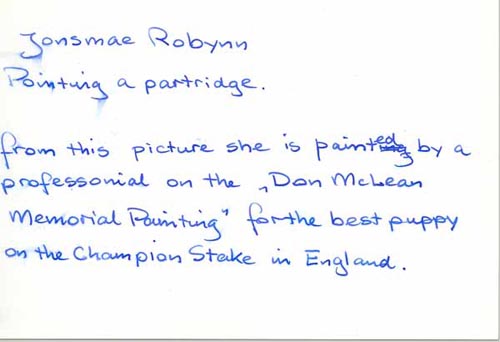 Jonsmae Robynn
Pointing a partridge.
from this picture she is painted by a
professonial on the „Don McLean
Memorial Painting" for the best puppy
on the Champion Stake in England.